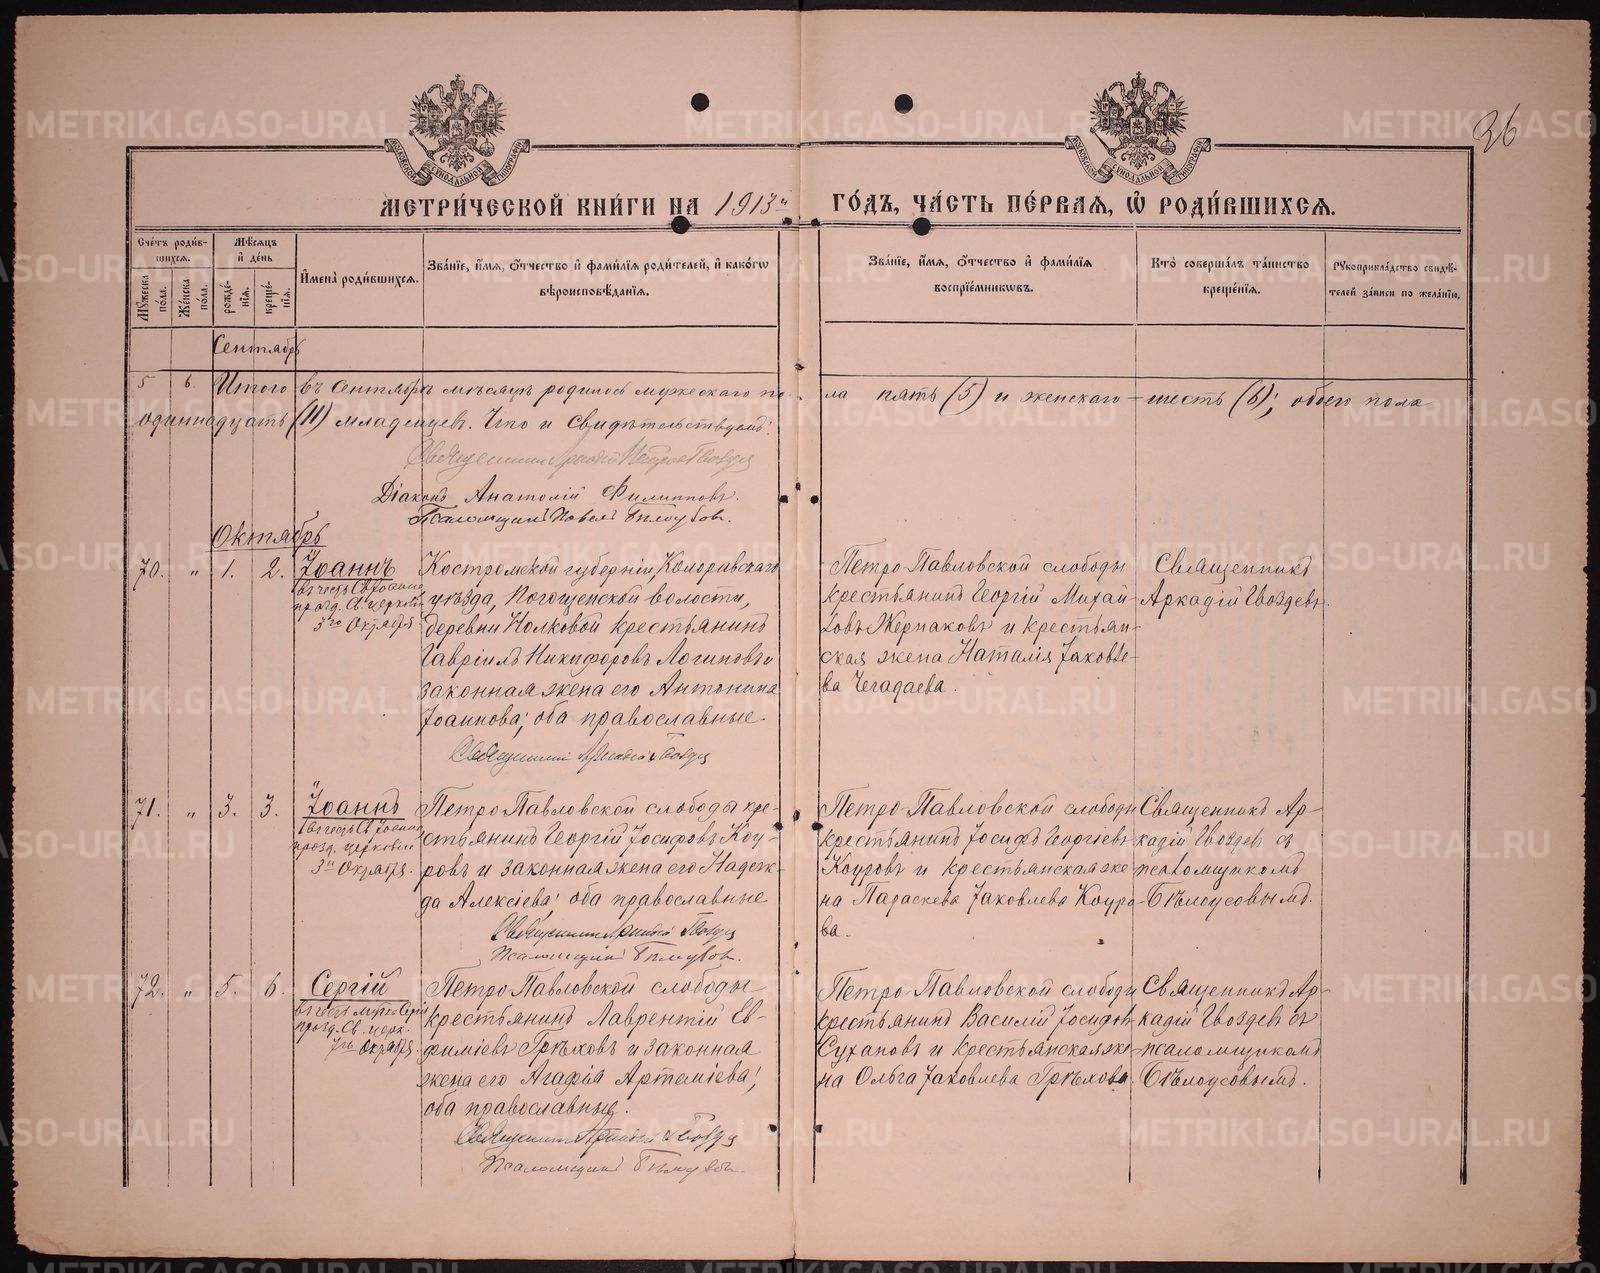 36
МЕТРИ́ЧЕСКОЙ КНИ́ГИ НА 1913й ГО́ДЪ, ЧА́СТЬ ПЕ́РВАЯ, Ѡ РОДИ́ВШИХСЯ.
Сче́тъ роди́в-
шихся.
Му́жеска по́ла.
Же́нска по́ла.
Мѣ́сяцъ и҆ де́нь
рожде́-нїя.
креще́-нїя.
И҆мена̀ роди́вшихся.
Зва́нїе, и҆́мя, ѻ҆́тчество и҆ фами́лїя роди́телей, и҆ како́гѡ
вѣроисповѣ́данїя.
Зва́нїе, и҆́мя, ѻ҆́тчество и҆ фами́лїя
воспрїе́мниковъ.
Кто̀ соверша́лъ та́инство
креще́нїя.
Рꙋкоприкла́дство свидѣ́-
телей за́писи по жела́нїю.
Сентябрь
5 6. Итого въ Сентябрѣ мѣсяцѣ родилось мужескаго по-
ла пять (5) и женскаго – шесть (6); обоего пола
одиннадцать (11) младенцевъ. Что и свидѣтельствуютъ:
Священникъ Аркадій Гвоздевъ
Діаконъ Анатолій Филипповъ.
Псаломщикъ Павелъ Бѣлоусовъ.
Октябрь
70. " 1. 2. Іоаннъ
въ честь Св. Іоанна
празд. Св. церковію
3го Октября.
Костромской губерніи, Кологривскаго
уѣзда, Погощенской волости,
деревни Нолковой крестьянинъ
Гавріилъ Никифоровъ Логиновъ и
законная жена его Антонина
Іоаннова; оба православные.
Священникъ Аркадій Гвоздевъ
Петро-Павловской слободы
крестьянинъ Георгій Михай-
ловъ Жернаковъ и крестьян-
ская жена Наталія Іаковле-
ва Чегадаева.
Священникъ
Аркадій Гвоздевъ.
71. " 3. 3. Іоаннъ
въ честь Св. Іоанна
празд. церковію
3го Октября.
Петро-Павловской слободы кре-
стьянинъ Георгій Іосифовъ Коу-
ровъ и законная жена его Надеж-
да Алексіева; оба православные
Священникъ Аркадій Гвоздевъ
Псаломщикъ Бѣлоусовъ.
Петро-Павловской слободы
крестьянинъ Іосифъ Георгіевъ
Коуровъ и крестьянская же-
на Параскева Іаковлева Коуро-
ва.
Священникъ Ар-
кадій Гвоздевъ съ
псаломщикомъ
Бѣлоусовымъ.
72. " 5. 6. Сергій
въ честь мученика Сергія
празд. Св. церк.
7го Октября.
Петро-Павловской слободы
крестьянинъ Лаврентій Ев-
фиміевъ Грѣховъ и законная
жена его Агафія Артеміева;
оба православные.
Священникъ Аркадій Гвоздевъ
Псаломщикъ Бѣлоусовъ.
Петро-Павловской слободы
крестьянинъ Василій Іосифовъ
Сухановъ и крестьянская же-
на Ольга Іаковлева Грѣхова.
Священникъ Ар-
кадій Гвоздевъ съ
псаломщикомъ
Бѣлоусовымъ.
METRIKI.GASO-URAL.RU